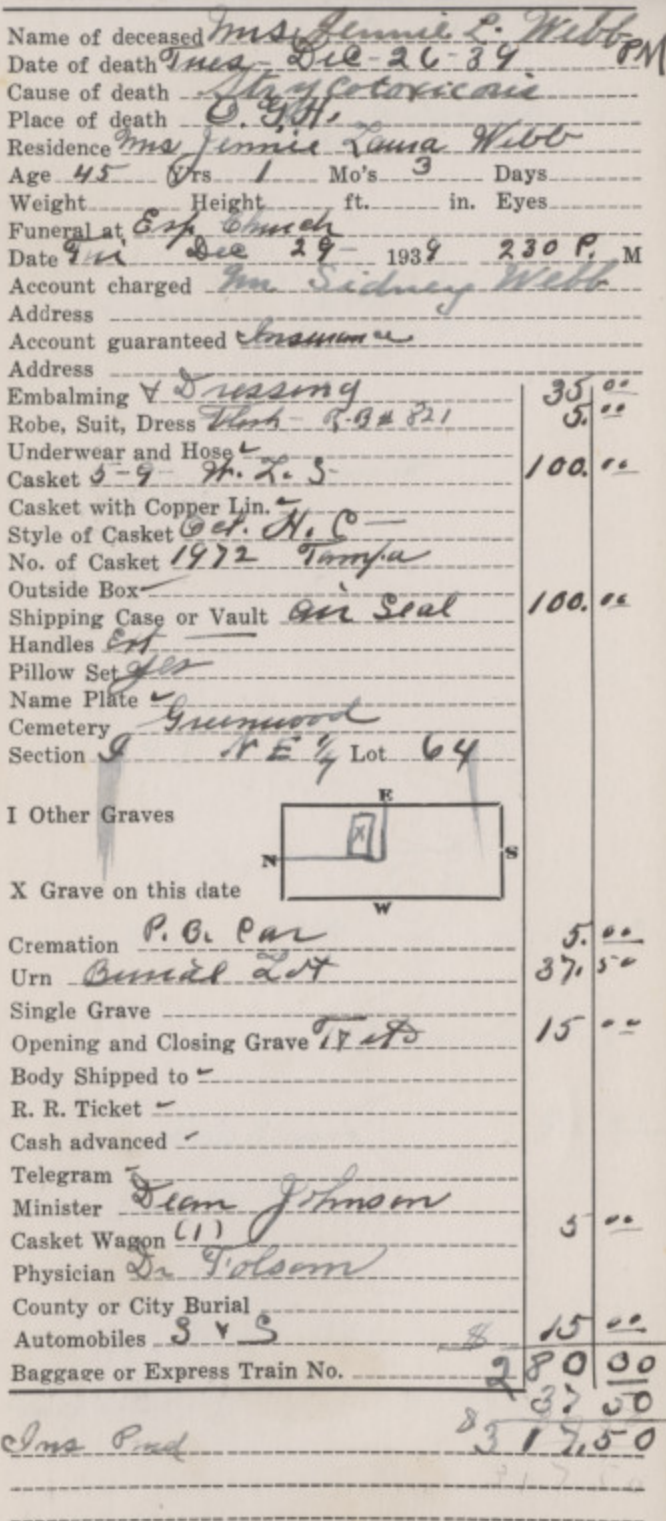 Name of deceased Mrs. Jennie L. Webb
Date of death Tues - Dec - 26 - 39 PM
Cause of death
Place of death O. G. H.
Residence Mrs Jennie Laura Webb
Age 45 Yrs 1 Mo's 3 Days
Weight Height ft. in. Eyes
Funeral at Esp Church
Date Fri Dec 29 - 1939 230 P. M
Account charged Mr Sidney Webb
Address
Account guaranteed Insurance
Address
Embalming & Dressing 35 00
Robe, Suit, Dress R-B # 821 5. 00
Underwear and Hose
Casket 5-9 W. L. S 100. 00
Casket with Copper Lin.
Style of Casket Oct. H. C
No. of Casket 1972 Tampa
Outside Box
Shipping Case or Vault Air Seal 100. 00
Handles Ext
Pillow Set yes
Name Plate
Cemetery Greenwood
Section N E 1/4 Lot 64
E
I Other Graves
X
N S
X Grave on this date
W
Cremation P. B. Car 5. 00
Urn Burial Lot 37. 50
Single Grave
Opening and Closing Grave 15 00
Body Shipped to
R. R. Ticket
Cash advanced
Telegram
Minister Dean Johnson
Casket Wagon (1) 5 00
Physician Dr Folsom
County or City Burial
Automobiles S & S $ 15 00
Baggage or Express Train No. 280 00
37 50
Ins Pmd $ 317.50
317 50